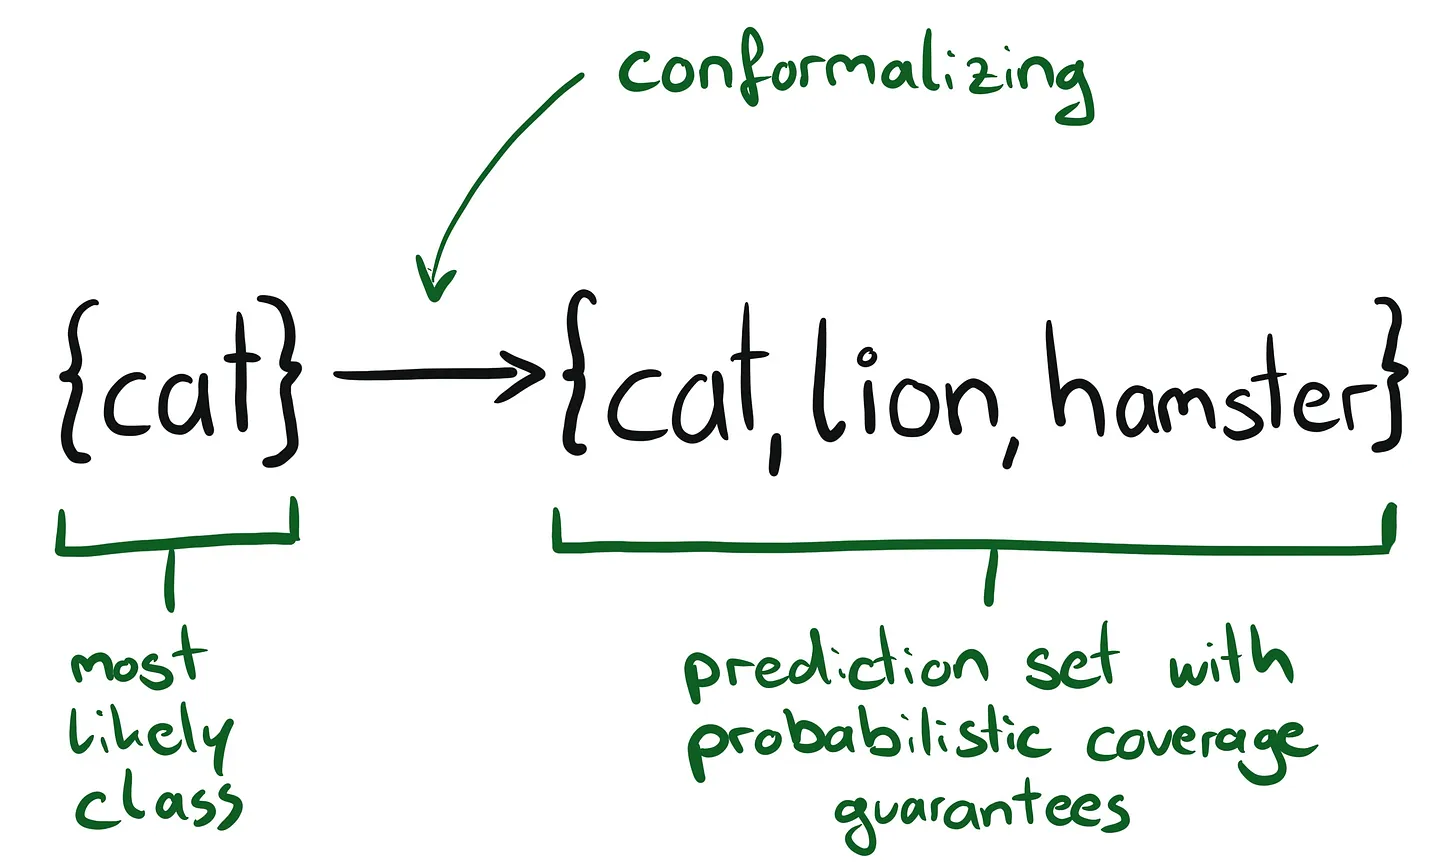 conformalizing
{cat} → {cat, lion, hamster}
most
likely
class
prediction set with
probabilistic coverage
guarantees